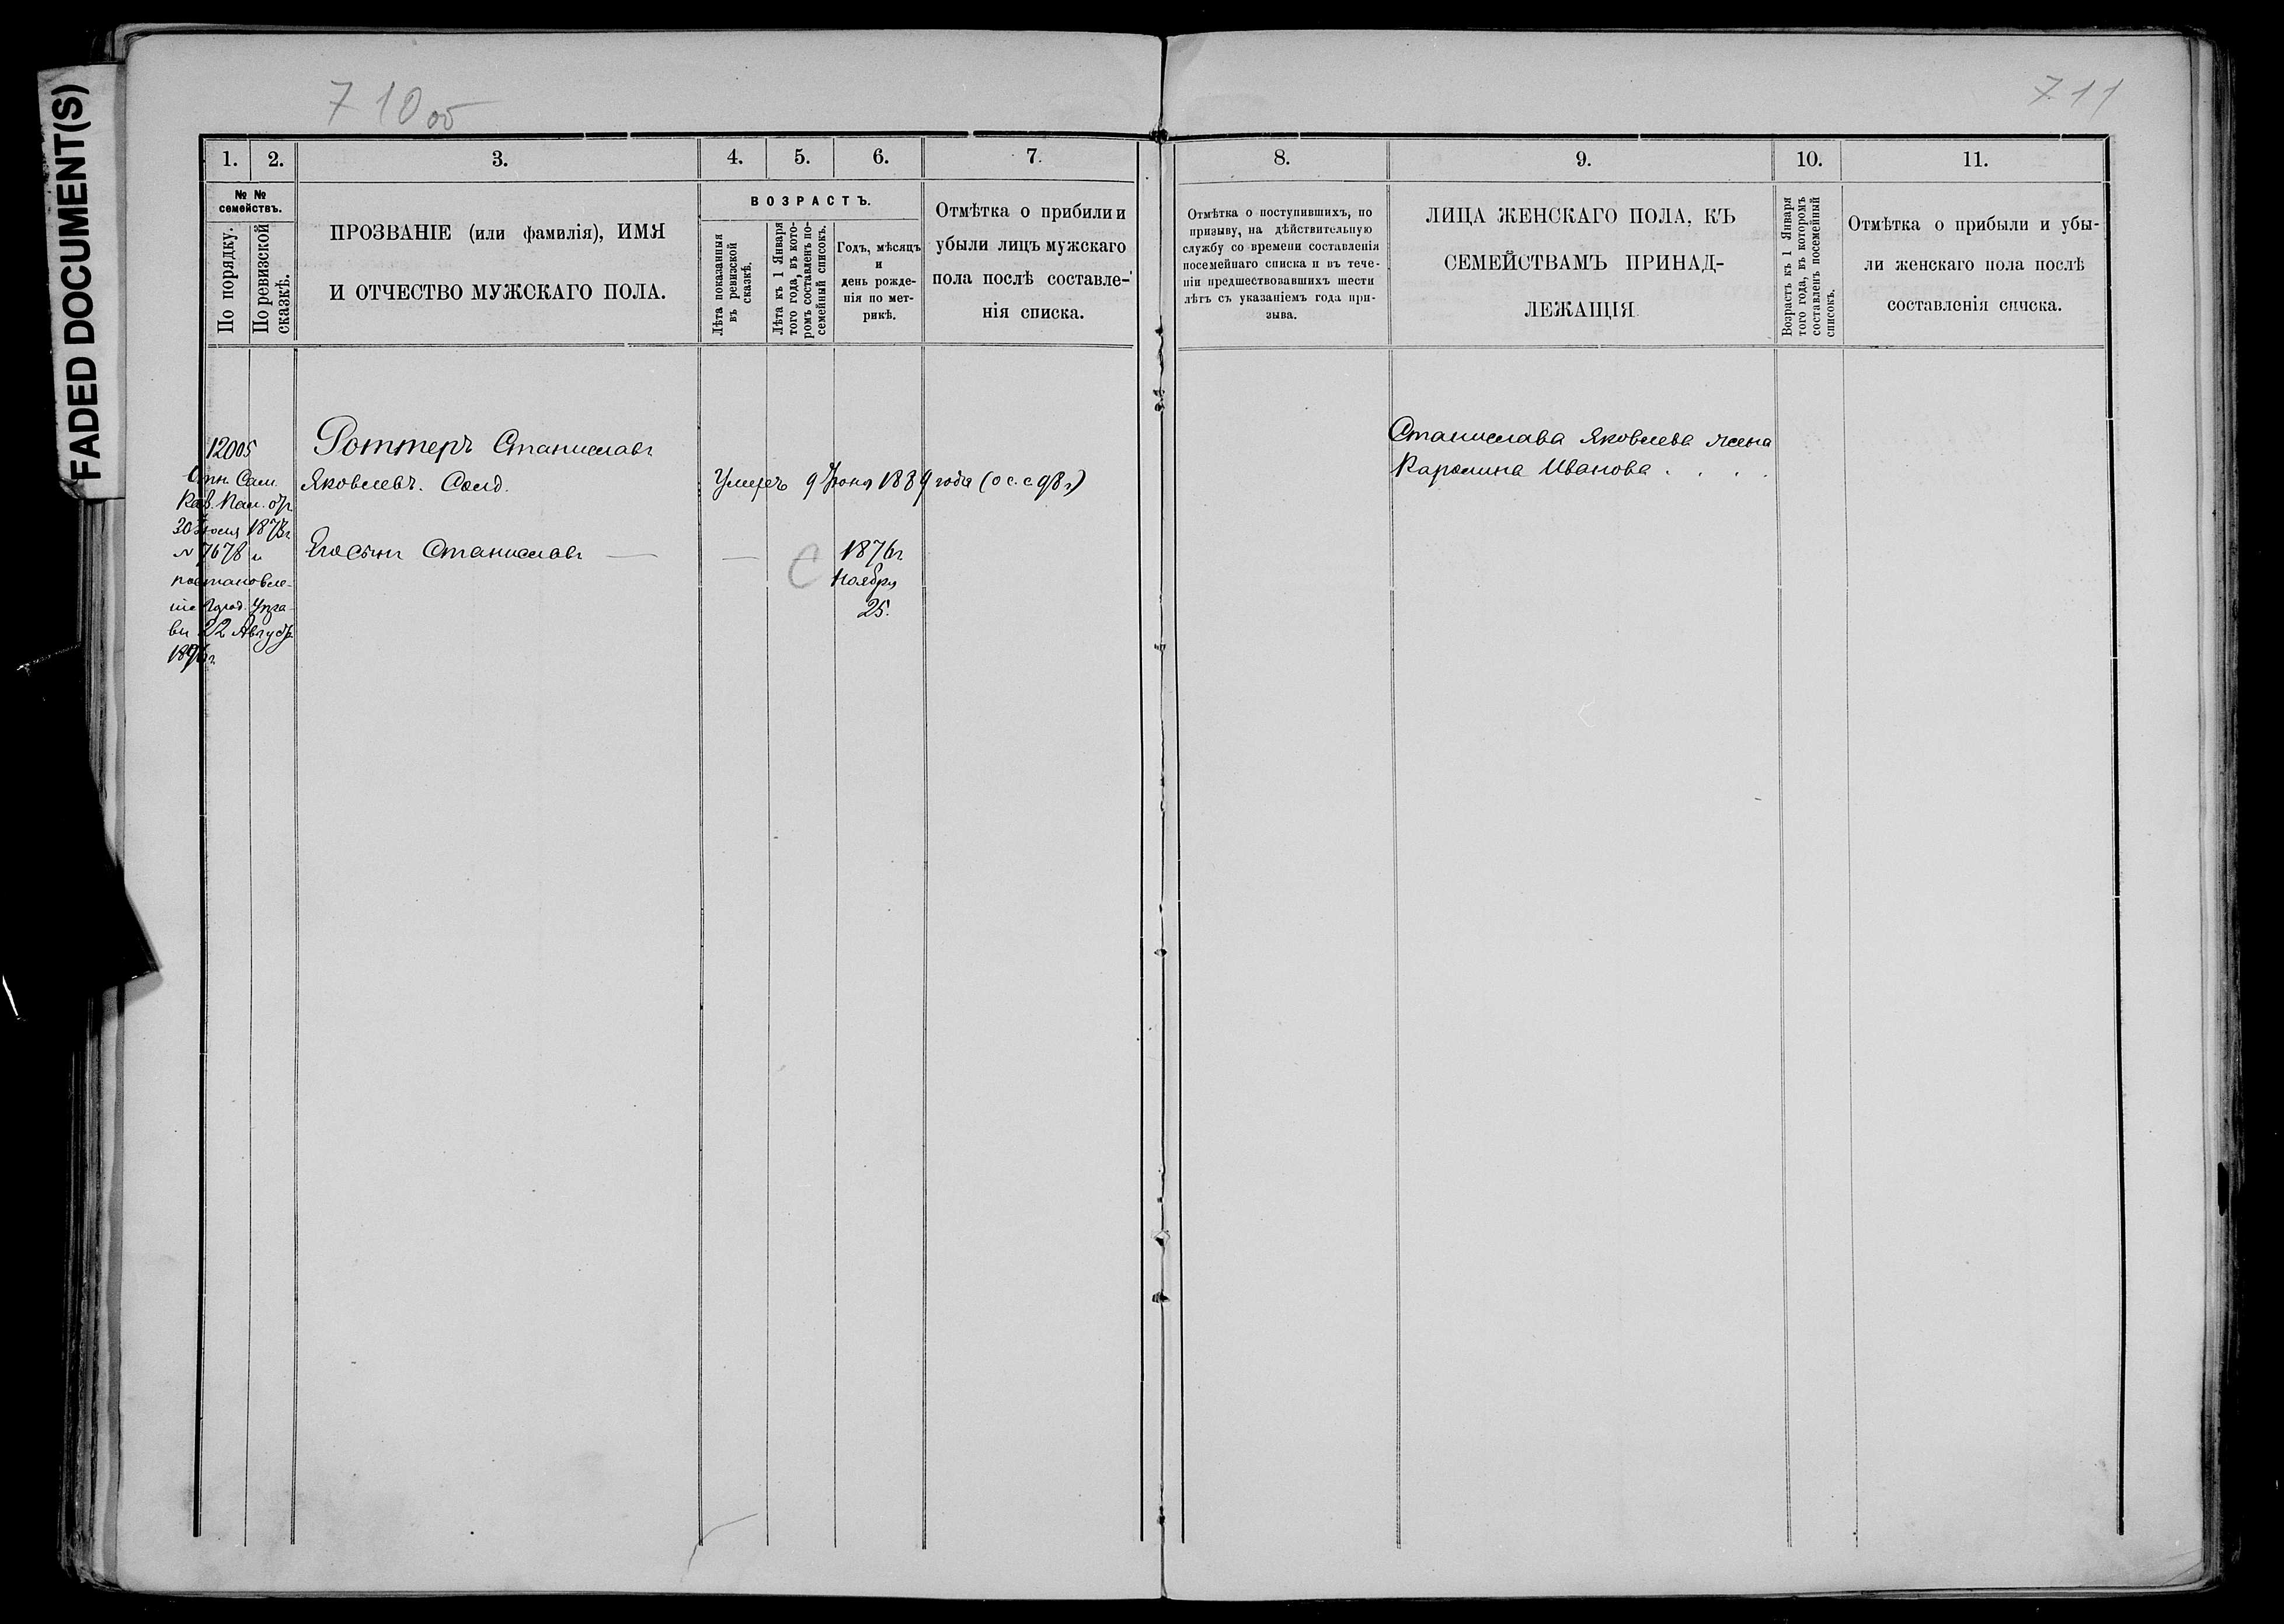 FADED DOCUMENT(S)
710 об
711
1.
2.
3.
4.
5.
6.
7.
8.
9.
10.
11.
№ №
семействъ.
По порядку.
По ревизской
сказкѣ.
ПРОЗВАНІЕ (или фамилія), ИМЯ
И ОТЧЕСТВО МУЖСКАГО ПОЛА.
ВОЗРАСТЪ.
Лѣта показанныя
въ ревизской
сказкѣ.
Лѣта къ 1 Января
того года, въ кото-
ромъ составленъ по-
семейный списокъ.
Годъ, мѣсяцъ
и
день рожде-
нія по мет-
рикѣ.
Отмѣтка о прибыли и
убыли лицъ мужскаго
пола послѣ составле-
нія списка.
Отмѣтка о поступившихъ, по
призыву, на дѣйствительную
службу со времени составленія
посемейнаго списка и въ тече-
ніи предшествовавшихъ шести
лѣтъ съ указаніемъ года при-
зыва.
ЛИЦА ЖЕНСКАГО ПОЛА, КЪ
СЕМЕЙСТВАМЪ ПРИНАД-
ЛЕЖАЩІЯ
Возрастъ къ 1 Января
того года, въ которомъ
составленъ посемейный
списокъ.
Отмѣтка о прибыли и убы-
ли женскаго пола послѣ
составленія списка.
12005
Роттеръ Станиславъ
Яковлевъ. Солд.
Умеръ 9 Іюня 1889 года (о с. с 98 г)
Его сынъ Станиславъ —
—
С
1876 г
Ноября
25.
Каз. Пал. от
30 Іюля
№ 7678 и
постановле-
ніе Город. Упра-
вы 22 Август.
Станислава Яковлева жена
Каролина Иванова . . . .